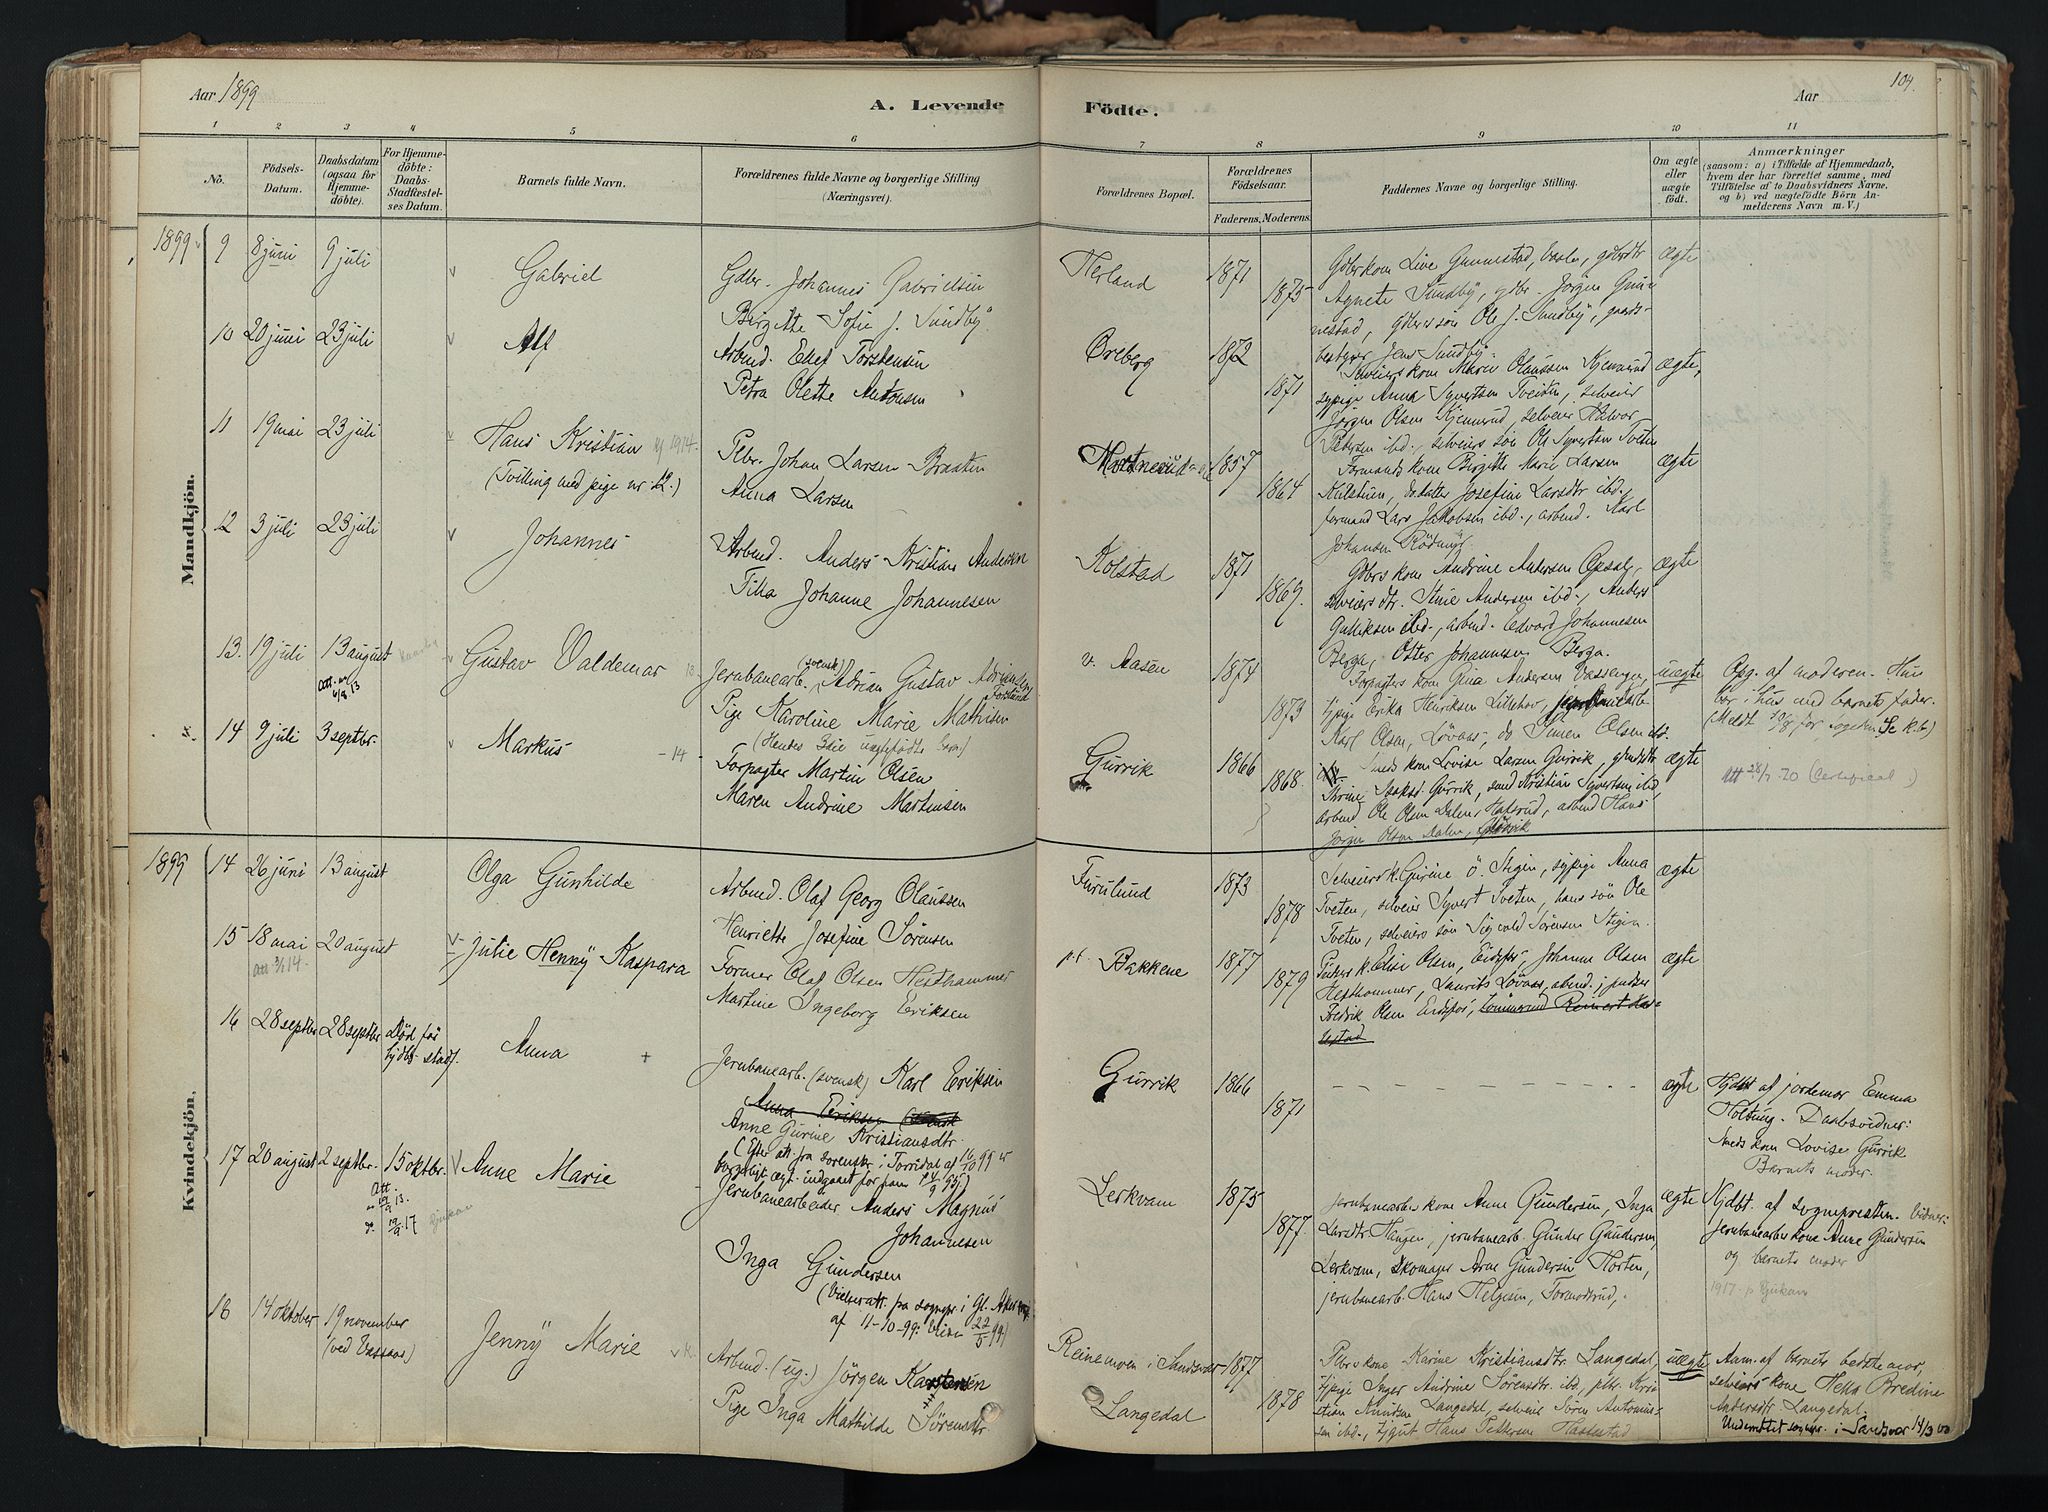 Aar 1899
A. Levende
Födte.
Aar
104.
1 2 3 4 5 6 7 8 9 10 11
No.
Födsels-
Datum.
Daabsdatum
(ogsaa for
Hjemme-
döbte).
For Hjemme-
döbte:
Daabs-
Stadfæstel-
ses Datum.
Barnets fulde Navn.
Forældrenes fulde Navne og borgerlige Stilling
(Næringsvei).
Forældrenes Bopæl.
Forældrenes
Födselsaar.
Faderens. Moderens.
Faddernes Navne og borgerlige Stilling.
Om ægte
eller
uægte
født.
Anmærkninger
(saasom: a) i Tilfælde af Hjemmedaab,
hvem der har forrettet samme, med
Tilföielse af to Daabsvidners Navne.
og b) ved uægtefödte Börn An-
melderens Navn m. V.)
Mandkjön.
1899 9 8 juni 9 juli Gabriel
Gdbr. Johannes Gabrielsen
Birgitte Sofie J. Sundby
Herland 1871 1875
Agnete Sundby, gdbr. Jörgen
nestad, gdbers sön Ole J. Sundby, gaards-
bestyrer Jens Sundby
ægte
10 20 juni 23 juli Alf
Arbmd. Elef Torstensen
Petra Olette Antonsen
Öreberg 1872 1871
Selveiers kone Marie Olaussen Kjennerud
sypige Anna Syvertsen Tveiten, selveier
Jörgen Olsen Kjennerud, selveier Halvor
Pedersen ibd., selveiers sön Ole Syvertsen Tveten
ægte,
11 19 mai 23 juli Hans Kristian 1914
(Tvilling med pige nr 12.)
Plbr. Johan Larsen Braaten
Anna Larsen
1857 1864
Formands kone Birgitte Marie Larsen
do datter Josefine Larsdtr ibd.,
formand Lars Jakobsen ibd., arbmd. Karl
Johansen Rödmyr
ægte
12 3 juli 23 juli Johannes
Arbmd. Anders Kristian Andersen
Tilla Johanne Johannesen
Kolstad 1871 1869.
Gdbrs kone Andrine Andersen Opsal,
selveiers dtr. Stine Andersen ibd., Anders
Gulliksen ibd., arbmd. Edvard Johannesen
Berga, Otter Johannesen Berga.
ægte
13. 19 juli 13 august Gustav Valdemar
Att.
4/9 13
Jernbanearb. (svensk) Adrian Gustav Adrianson
Forslund
Pige Karoline Marie Mathisen
(Hendes 3die uægtefödte barn)
v. Aasen 1874 1873
Forpagters kone Gina Andersen Vassenger,
sypige Erika Henriksen Lillehav,
Karl Olsen, Lövaas, do Simen Olsen ibd.
uægte
Opg. af moderen. Hun
bor i hus med barnets fader.
14 9 juli 3 septbr. Markus -14-
Forpagter Martin Olsen
Maren Andrine Martinsen
Gurrik 1866 1868.
Smeds kone Lovise Larsen Gurrik,
Gurrik, smed Kristian Syvertsen ibd.,
arbmd Ole Olsen Dalen, Halsrud, arbmd Hans
Jörgen Olsen Dalen, Gurrik
ægte
Att 28/7 20 (Certificat)
Kvindekjön.
1899 14 26 juni 13 august Olga Gunhilde
Arbmd. Olaf Georg Olaussen
Henriette Josefine Sörensen
Furulund 1873 1878
Selveiers k. Gurine Ö. Stigen, sypige Anna
Tveten, selveier Syvert Tveten, hans sön Ole
Tveten, selveiers sön Sigvald Sörensen Stigen.
ægte
15 18 mai 20 august Julie Henny Kaspara
Former Olaf Olsen Hesthammer
Martine Ingeborg Eriksen
p.t. Bakkene 1877 1879
Pudsers k. Elise Olsen, Eidsfos, Johanne Olsen
Hesthammer, Laurits Lövaas, arbmd., pudser
Fredrik Olsen Eidsfos, tömmermd Reinert Has-
lestad
ægte
16 28 septbr 28 septbr Död før
hjdbs stadf. Anna +
Jernbanearb. (svensk) Karl Eriksen
Anna Eriksen (svensk
Anne Gurine Kristiansdtr.
(Efter att. fra sorenskr. i Torridal af 16/10 99 er
borgeligt ægt. indgaaet for dem 14/9 95)
Gurrik 1866 1871
ægte
Hjdbt af jordemor Emma
Holtung. Daabsvidner:
Smeds kone Lovise Gurrik
Barnets moder.
17 20 august 2 septbr. 15 oktbr. Anne Marie
Att.
19/9 17 Rjukan
Jernbanearbeider Anders Magnus
Johannesen
Inga Gundersen
(Vielsesatt. fra sognepr. i Gl. Aker
af 11-10-99: viede 22/5 99)
Lerkvam 1875 1877.
Jernbanearb. kone Anne Gundersen, Inga
Larsdtr Haugen, jernbanearb. Gunder Gundersen,
Lerkvam, Skomager Arne Gundersen Horten,
jernbanearb. Hans Helgesen, Formodrud,
ægte
Hjdbt. af sognepresten. Vidner:
Jernbanearbs kone Anne Gundersen
og barnets moder
1917 p Rjukan
18 14 oktober 19 november
(ved Vassaas) Jenny Marie
Arbmd. (ug.) Jörgen Karstensen
Pige Inga Mathilde Sörensdtr
Reinemoen i Sandsvær 1877
Langedal 1878
Plbrs kone Karine Kristiansdtr. Langedal,
sypige Inger Andrine Sörensdtr. ibd., plbr. Kri-
stian Knutsen Langedal, selveier Sören Antonius-
sen ibd., Hans Pettersen Hastestad
uægte
Anm. af barnets bedstemor
selveiers kone Helle Bredine
Andersdtr. Langedal.
Underrettet sognepr. i Sandsvær 14/3 00